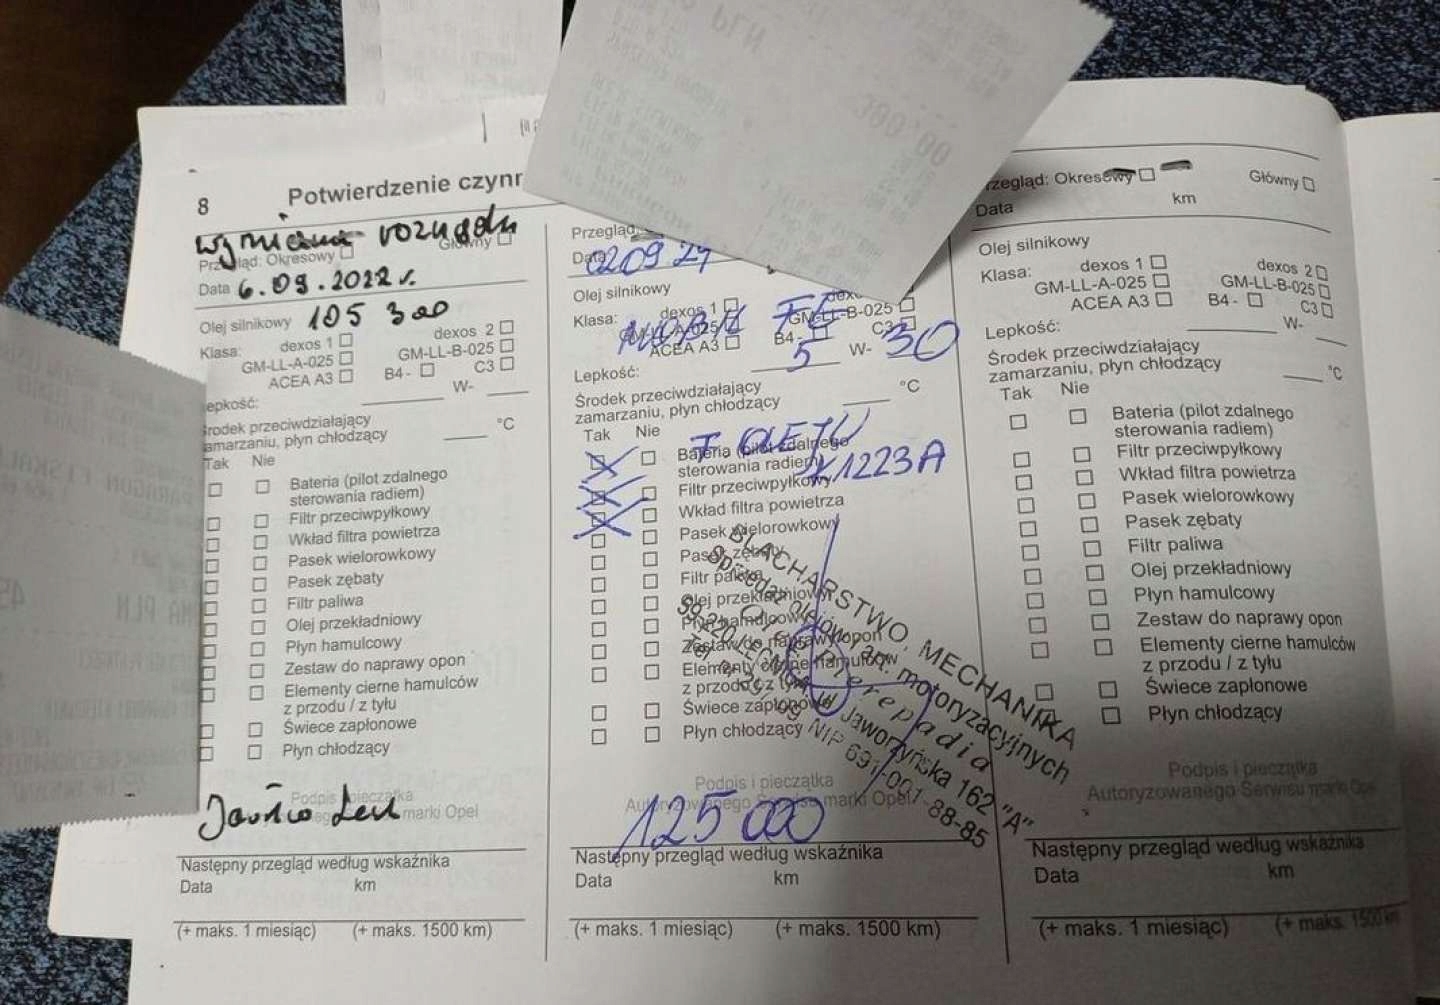 8 Potwierdzenie czynn
wymiana rozrządu
Przegląd: Okresowy Główny
Data 6.09.2022 r.
Olej silnikowy 105 300
Klasa: dexos 1 dexos 2
GM-LL-A-025 GM-LL-B-025
ACEA A3 B4- C3
Lepkość: W-
Środek przeciwdziałający
zamarzaniu, płyn chłodzący °C
Tak Nie
Bateria (pilot zdalnego
sterowania radiem)
Filtr przeciwpyłkowy
Wkład filtra powietrza
Pasek wielorowkowy
Pasek zębaty
Filtr paliwa
Olej przekładniowy
Płyn hamulcowy
Zestaw do naprawy opon
Elementy cierne hamulców
z przodu / z tyłu
Świece zapłonowe
Płyn chłodzący
Podpis i pieczątka
marki Opel
Następny przegląd według wskaźnika
Data km
(+ maks. 1 miesiąc) (+ maks. 1500 km)
Przegląd
Data 02 09 24
Olej silnikowy
Klasa: dexos 1
GM-LL-A-025 GM-LL-B-025
ACEA A3 B4- C3
Lepkość: 5 W- 30
Środek przeciwdziałający
zamarzaniu, płyn chłodzący °C
Tak Nie
Bateria (pilot zdalnego
sterowania radiem)
K1223A
Filtr przeciwpyłkowy
Wkład filtra powietrza
Pasek wielorowkowy
Pasek zębaty
Filtr paliwa
Olej przekładniowy
Płyn hamulcowy
Zestaw do naprawy opon
Elementy cierne hamulców
z przodu / z tyłu
Świece zapłonowe
Płyn chłodzący
BLACHARSTWO, MECHANIKA
Sprzedaż olejów, art. motoryzacyjnych
Jaworzyńska 162 "A"
NIP 691-001-88-85
Podpis i pieczątka
Autoryzowanego Serwisu marki Opel
125 000
Następny przegląd według wskaźnika
Data km
(+ maks. 1 miesiąc) (+ maks. 1500 km)
Przegląd: Okresowy Główny
Data km
Olej silnikowy
Klasa: dexos 1 dexos 2
GM-LL-A-025 GM-LL-B-025
ACEA A3 B4- C3
Lepkość: W-
Środek przeciwdziałający
zamarzaniu, płyn chłodzący °C
Tak Nie
Bateria (pilot zdalnego
sterowania radiem)
Filtr przeciwpyłkowy
Wkład filtra powietrza
Pasek wielorowkowy
Pasek zębaty
Filtr paliwa
Olej przekładniowy
Płyn hamulcowy
Zestaw do naprawy opon
Elementy cierne hamulców
z przodu / z tyłu
Świece zapłonowe
Płyn chłodzący
Podpis i pieczątka
Autoryzowanego Serwisu marki Opel
Następny przegląd według wskaźnika
Data km
(+ maks. 1 miesiąc) (+ maks. 1500 km)